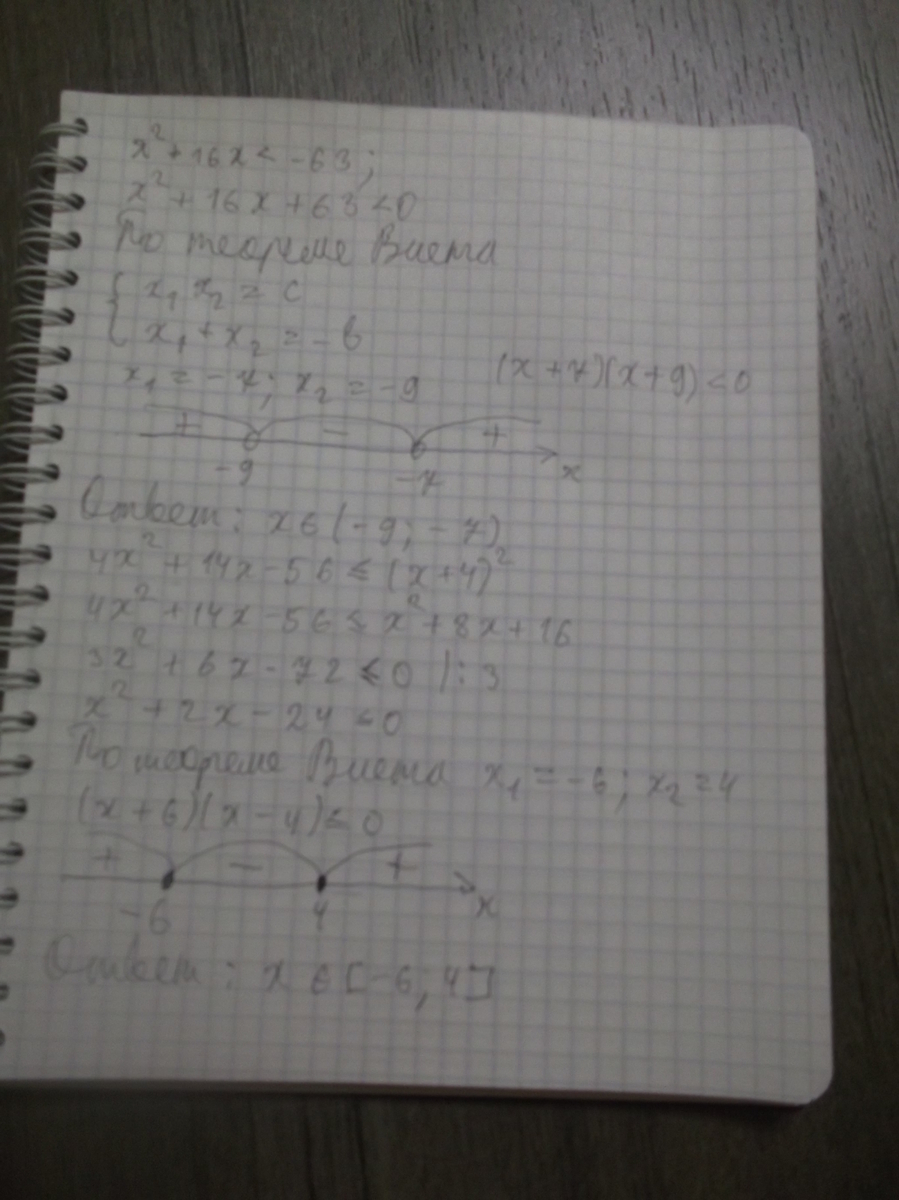 x² + 16x < -63;
x² + 16x + 63 < 0
По теореме Виета
{ x₁ x₂ = c
{ x₁ + x₂ = -b
x₁ = -7; x₂ = -9 (x + 7)(x + 9) < 0
+ - +
-9 -7 x
Ответ: x ∈ (-9; -7)
4x² + 14x - 56 ≤ (x+4)²
4x² + 14x - 56 ≤ x² + 8x + 16
3x² + 6x - 72 ≤ 0 |: 3
x² + 2x - 24 ≤ 0
По теореме Виета x₁ = -6; x₂ = 4
(x + 6)(x - 4) ≤ 0
+ - +
-6 4 x
Ответ: x ∈ [-6; 4]